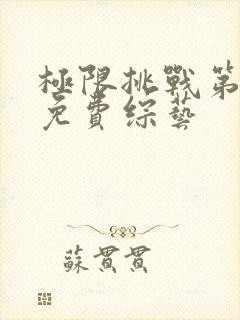 極限挑戰第
免費綜藝
蘇貫貫